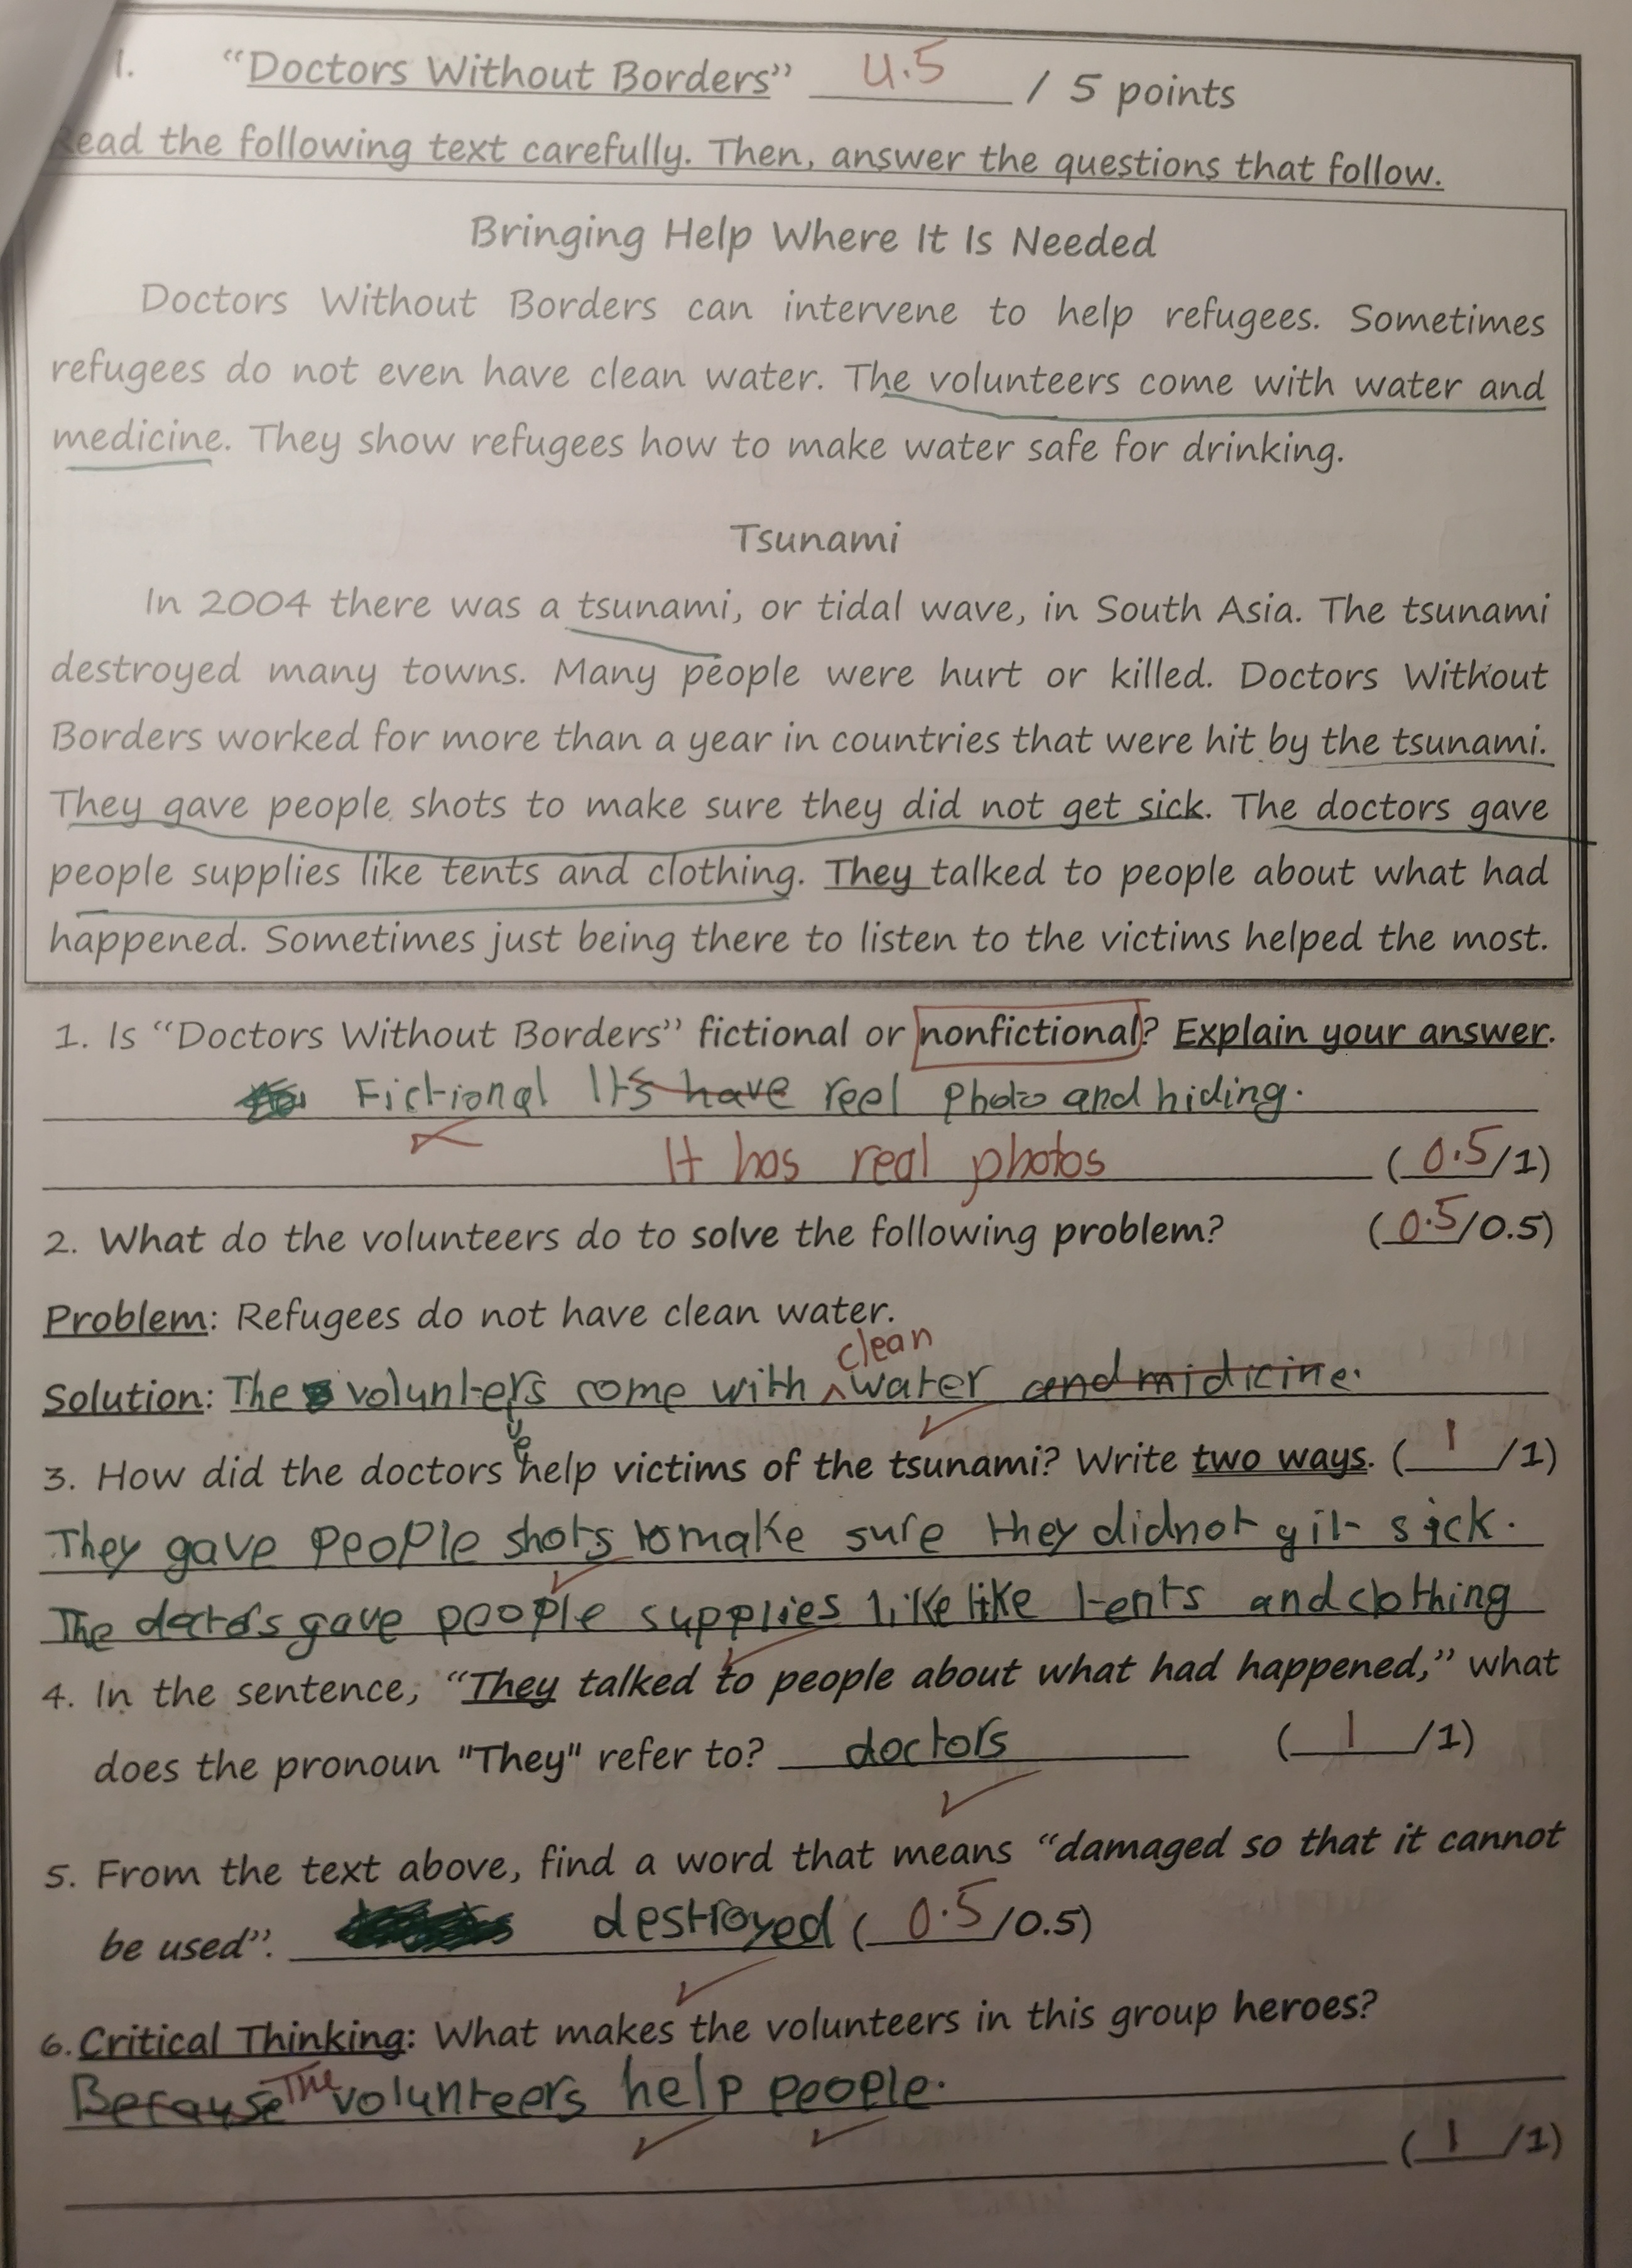 1. "Doctors Without Borders" 4.5 / 5 points
Read the following text carefully. Then, answer the questions that follow.
Bringing Help Where It Is Needed
Doctors Without Borders can intervene to help refugees. Sometimes
refugees do not even have clean water. The volunteers come with water and
medicine. They show refugees how to make water safe for drinking.
Tsunami
In 2004 there was a tsunami, or tidal wave, in South Asia. The tsunami
destroyed many towns. Many people were hurt or killed. Doctors Without
Borders worked for more than a year in countries that were hit by the tsunami.
They gave people shots to make sure they did not get sick. The doctors gave
people supplies like tents and clothing. They talked to people about what had
happened. Sometimes just being there to listen to the victims helped the most.
1. Is "Doctors Without Borders" fictional or nonfictional? Explain your answer.
Fictional It's have reel photo and hiding.
It has real photos (0.5/1)
2. What do the volunteers do to solve the following problem? (0.5/0.5)
Problem: Refugees do not have clean water.
clean
Solution: The volunters come with water and midicine.
3. How did the doctors help victims of the tsunami? Write two ways. (1/1)
They gave people shots to make sure they didnot git sick.
The doctors gave people supplies like like tents and clothing
4. In the sentence, "They talked to people about what had happened," what
does the pronoun "They" refer to? doctors (1/1)
5. From the text above, find a word that means "damaged so that it cannot
be used". destroyed (0.5/0.5)
6. Critical Thinking: What makes the volunteers in this group heroes?
Because The volunteers help people.
(1/1)